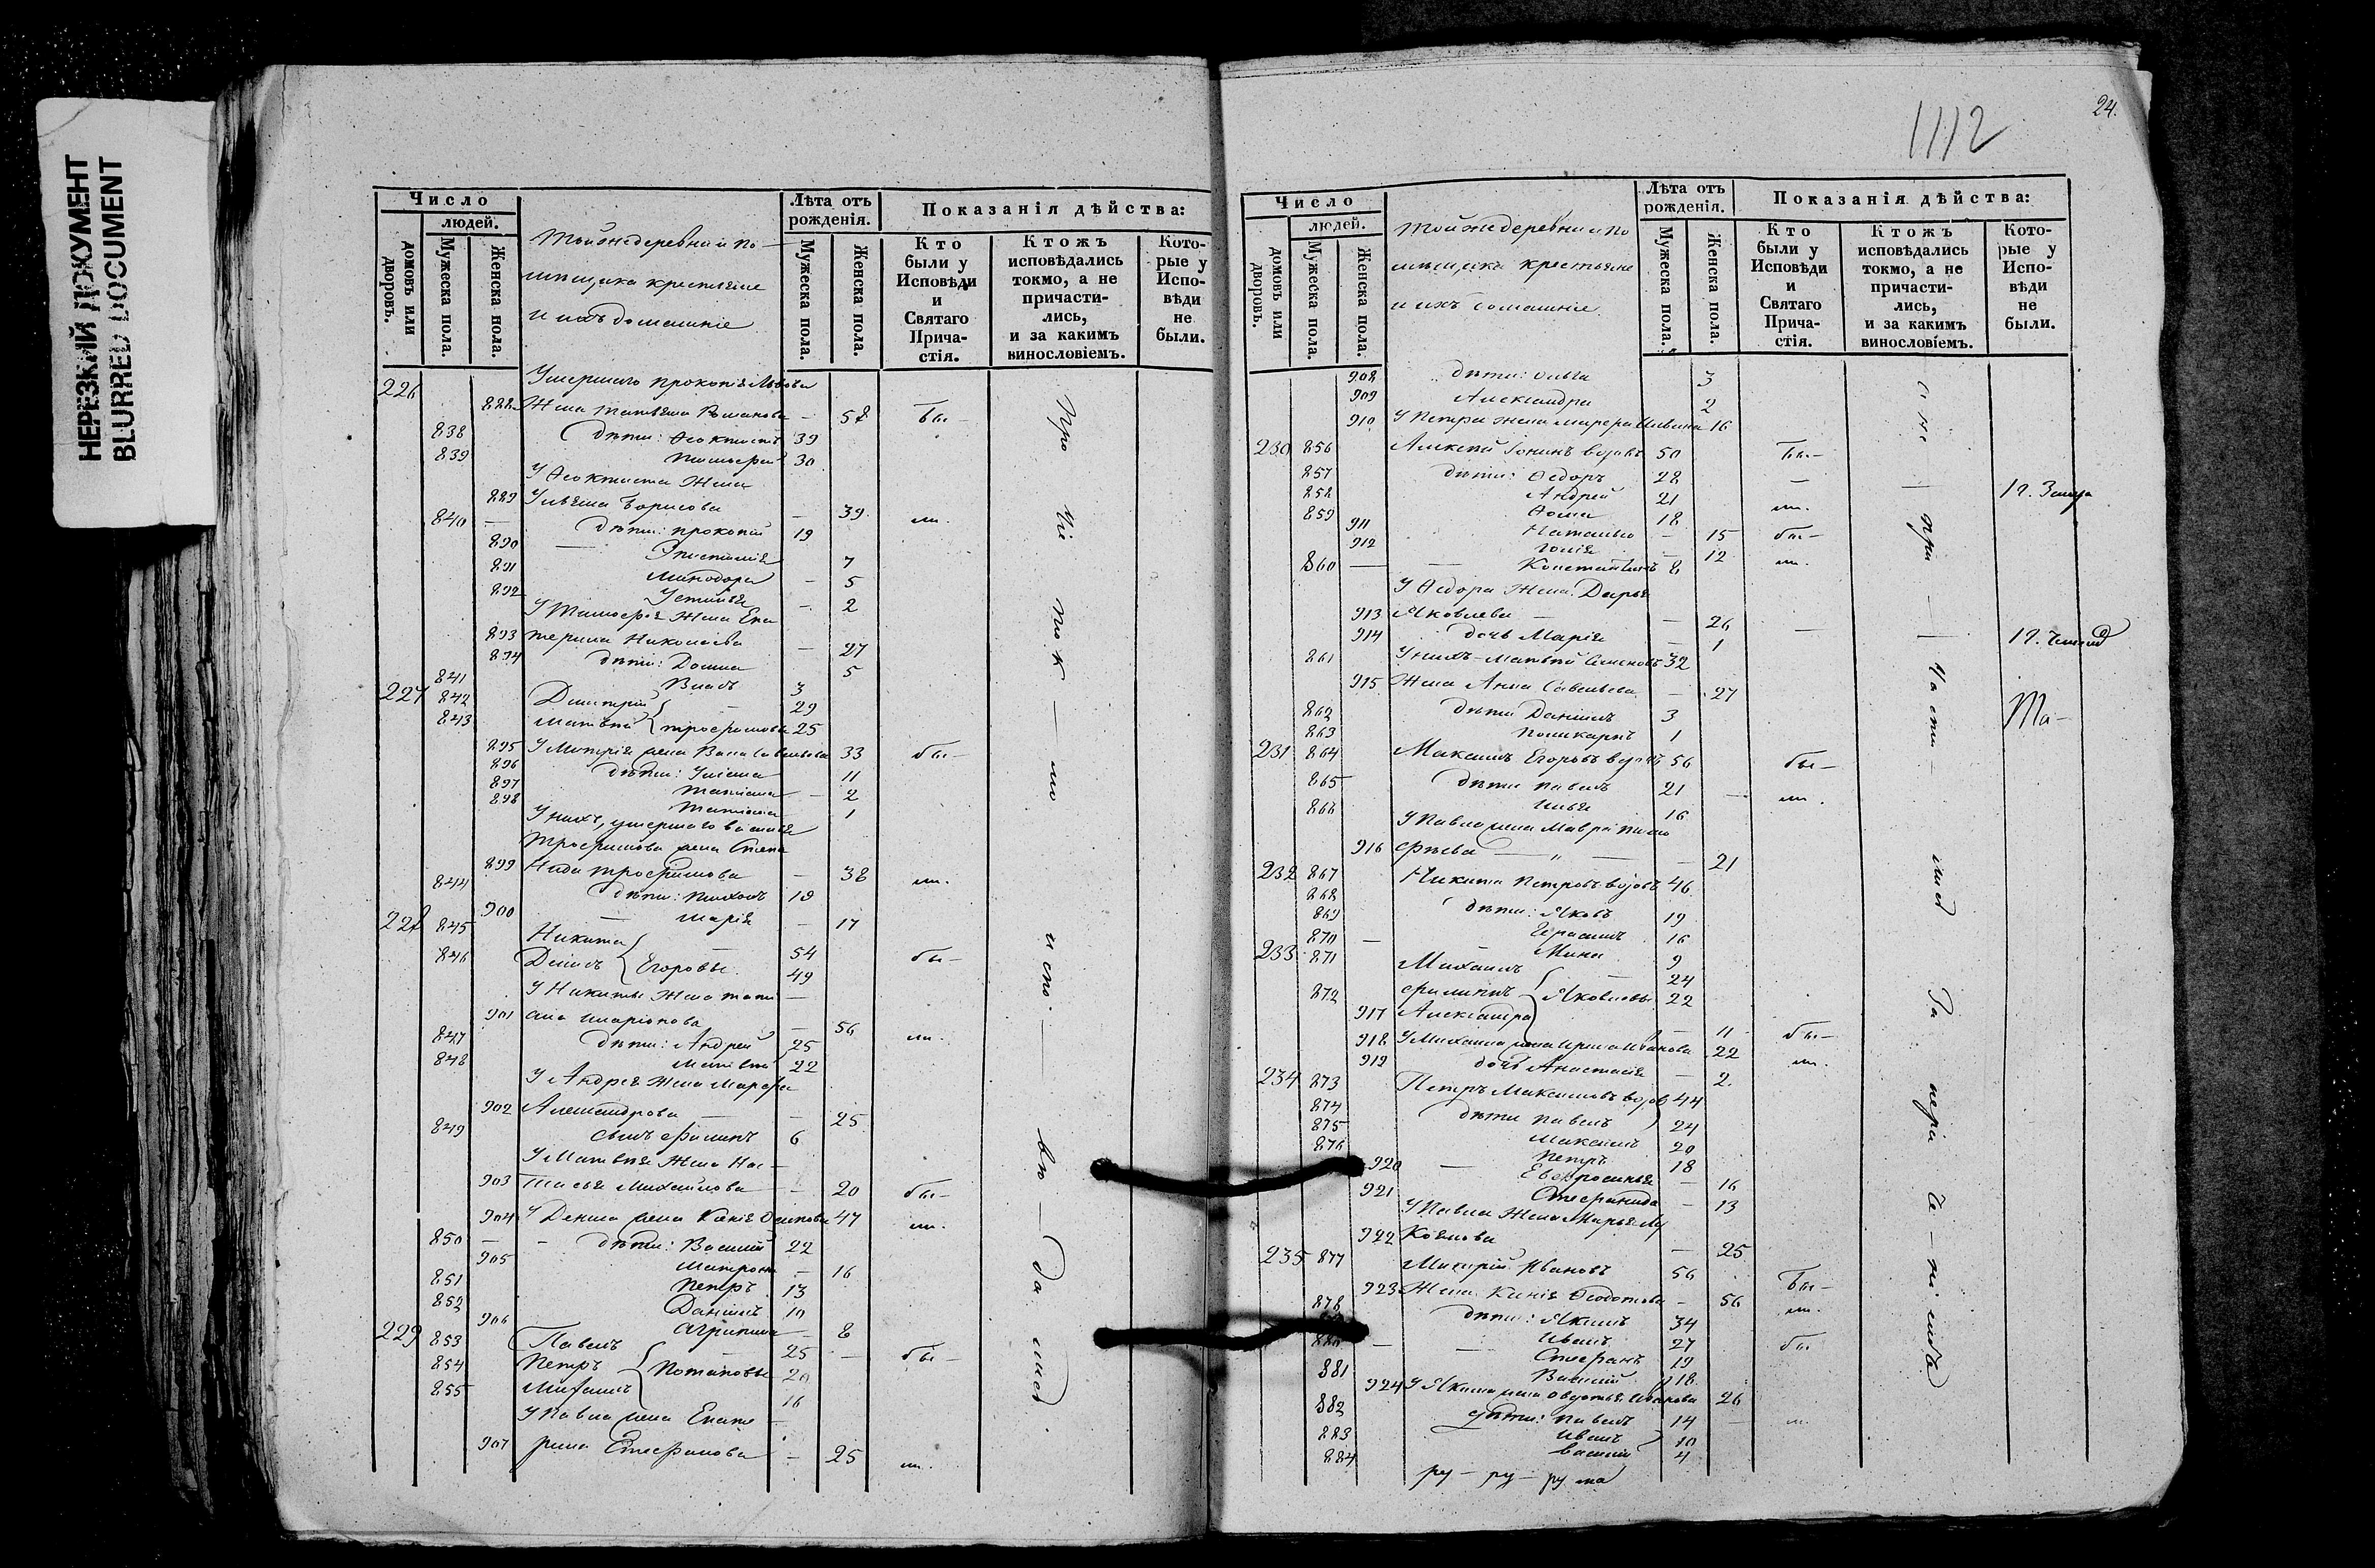 НЕРЕЗКИЙ ДОКУМЕНТ
BLURRED DOCUMENT
Число
людей.
домовъ или дворовъ.
Мужеска пола.
Женска пола.
Тойже деревни и по-
мѣщика крестьяне
и ихъ домашніе
Лѣта отъ рожденія.
Мужеска пола.
Женска пола.
Показанія дѣйства:
Кто были у Исповѣди и Святаго Причастія.
Ктожъ исповѣдались токмо, а не причастились, и за какимъ винословіемъ.
Которые у Исповѣди не были.
226 Умершаго Прокопія Львова
888 Жена Татьяна Романова - 58 бы-
838 дѣти: Ѳеоктистъ 39
839 Тимофей 30
У Ѳеоктиста Жена
889 Ульяна Борисова - 39 ли.
840 дѣти: Прокопій 19
890 7
891 Минодора - 5
892 Устинья - 2
У Тимофея Жена Ека
893 терина Николаева - 27
894 дѣти: Домна 5
841 Власъ 3
227 842 Димитрій - 29
843 Матвѣй Трофимовы 25
895 У Митрія жена Васа Савельева 33 бы-
896 дѣти: Ульяна 11
897 Татіана - 2
898 Татіана 1
У нихъ, умершаго Василья
Трофимова жена Степа
899 нида Трофимова - 38 ли.
844 дѣти: Тихонъ 19
900 Марія - 17
228 845 Никита 54
846 Денисъ Егоровы 49 бы-
У Никиты Жена Тати
901 ана Иларіонова - 56 ли.
847 дѣти: Андрей 25
848 Матвѣй 22
У Андрея Жена Марфа
902 Александрова - 25
849 сынъ Филипъ 6
У Матвѣя Жена Нас-
903 тасья Михайлова - 20 бы-
904 У Дениса жена Ксенія Осипова 47 ли.
850 дѣти: Василій 22
905 Матрона - 16
851 Петръ 13
852 Даніилъ 10
906 Агрипина - 8
229 853 Павелъ 25 бы-
854 Петръ Потаповы 20
855 Михаилъ 16
У Павла жена Екате
907 рина Стефанова - 25 ли.
Про чіе ток - мо испо - вѣ - да лись
1112
24.
Число
людей.
домовъ или дворовъ.
Мужеска пола.
Женска пола.
Тойже деревни и по
мѣщика крестьяне
и ихъ домашніе
Лѣта отъ рожденія.
Мужеска пола.
Женска пола.
Показанія дѣйства:
Кто были у Исповѣди и Святаго Причастія.
Ктожъ исповѣдались токмо, а не причастились, и за какимъ винословіемъ.
Которые у Исповѣди не были.
908 дѣти: Ольга 3
909 Александра 2
910 У Петра жена Марфа Ильина 16
230 856 Алексѣй Іонинъ вдовъ 50 бы-
857 дѣти: Ѳедоръ 28 -
858 Андрей 21 ли.
859 Ѳома 18
911 Наталья - 15 бы-
912 - 12 ли.
860 Константинъ 8
У Ѳедора Жена Дарья
913 Яковлева - 26
914 дочь Марія - 1
861 У нихъ - Матвѣй Семеновъ 32
915 Жена Анна Савельева - 27
862 дѣти Даніилъ 3
863 Поликарпъ 1
Та-
231 864 Максимъ Егоровъ вдовъ 56 бы-
865 дѣти Павелъ 21 ли.
866 Илья 16
У Павла жена Мавра Тимо
916 фѣева - 21
232 867 Никита Петровъ вдовъ 46
868 дѣти: Яковъ 19
869 Герасимъ 16
870 Мина 9
233 871 Михаилъ 24
872 Филиппъ Яковлевы 22
917 Александра - 11 бы-
918 У Михаила жена Ирина Иванова 22 ли.
919 дочь Анастасія - 2.
234 873 Петръ Максимовъ вдовъ 44
874 дѣти Павелъ 24
875 Максимъ 20
876 Петръ 18
920 Евфросинья - 16
921 Стефанида - 13
У Павла Жена Марья Лу
922 кьянова - 25
235 877 Митрій Ивановъ 56
923 Жена Ксенія Ѳедотова - 56 бы-
878 дѣти: Якимъ 34 ли.
Иванъ 27
880 Стефанъ 19 бы
881 Василій 18
924 У Якима жена Авдотья Иванова 26
882 дѣти: Павелъ 14 ли.
883 Иванъ 10
884 Василій 4
ру - ру - ру ма